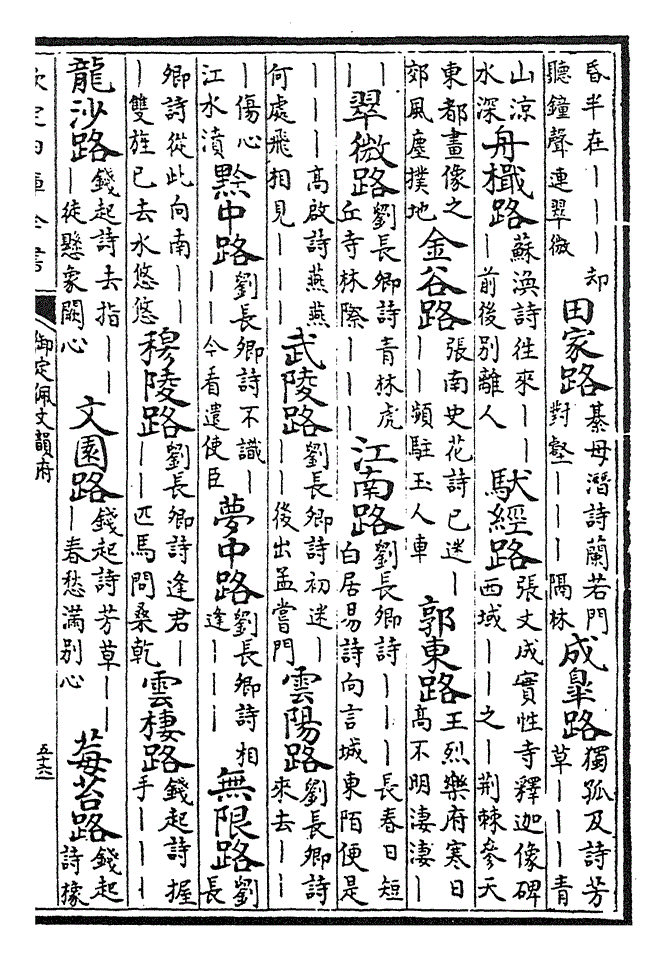 昏半在｜｜｜却聽鐘聲連翠微 田家路 綦母潛詩蘭若門對壑｜｜｜隔林 成臯路 獨孤及詩芳草｜｜｜青
山涼水深 舟檝路 蘇渙詩往來｜｜｜前後別離人 馱經路 張文成實性寺釋迦像碑西域｜｜之｜荆棘參天
東都畫像之郊風塵撲地 金谷路 張南史花詩已迷｜｜｜頻駐玉人車 郭東路 王烈樂府寒日高不明淒淒｜
｜｜ 翠微路 劉長卿詩青林虎丘寺林際｜｜｜ 江南路 劉長卿詩｜｜｜長春日短白居易詩向言城東陌便是
｜｜｜高啟詩燕燕何處飛相見｜｜｜ 武陵路 劉長卿詩初迷｜｜｜後出孟嘗門 雲陽路 劉長卿詩來去｜｜
｜傷心江水濆 黔中路 劉長卿詩不識｜｜｜今看遣使臣 夢中路 劉長卿詩相逢｜｜｜ 無限路 劉長
卿詩從此向南｜｜｜雙旌已去水悠悠 穆陵路 劉長卿詩逢君｜｜｜匹馬問桑乾 雲棲路 錢起詩握手｜｜｜
龍沙路 錢起詩去指｜｜｜徒懸象闕心 文園路 錢起詩芳草｜｜｜春愁滿別心 莓苔路 錢起詩椽
欽定四庫全書 御定佩文韻府 五十六